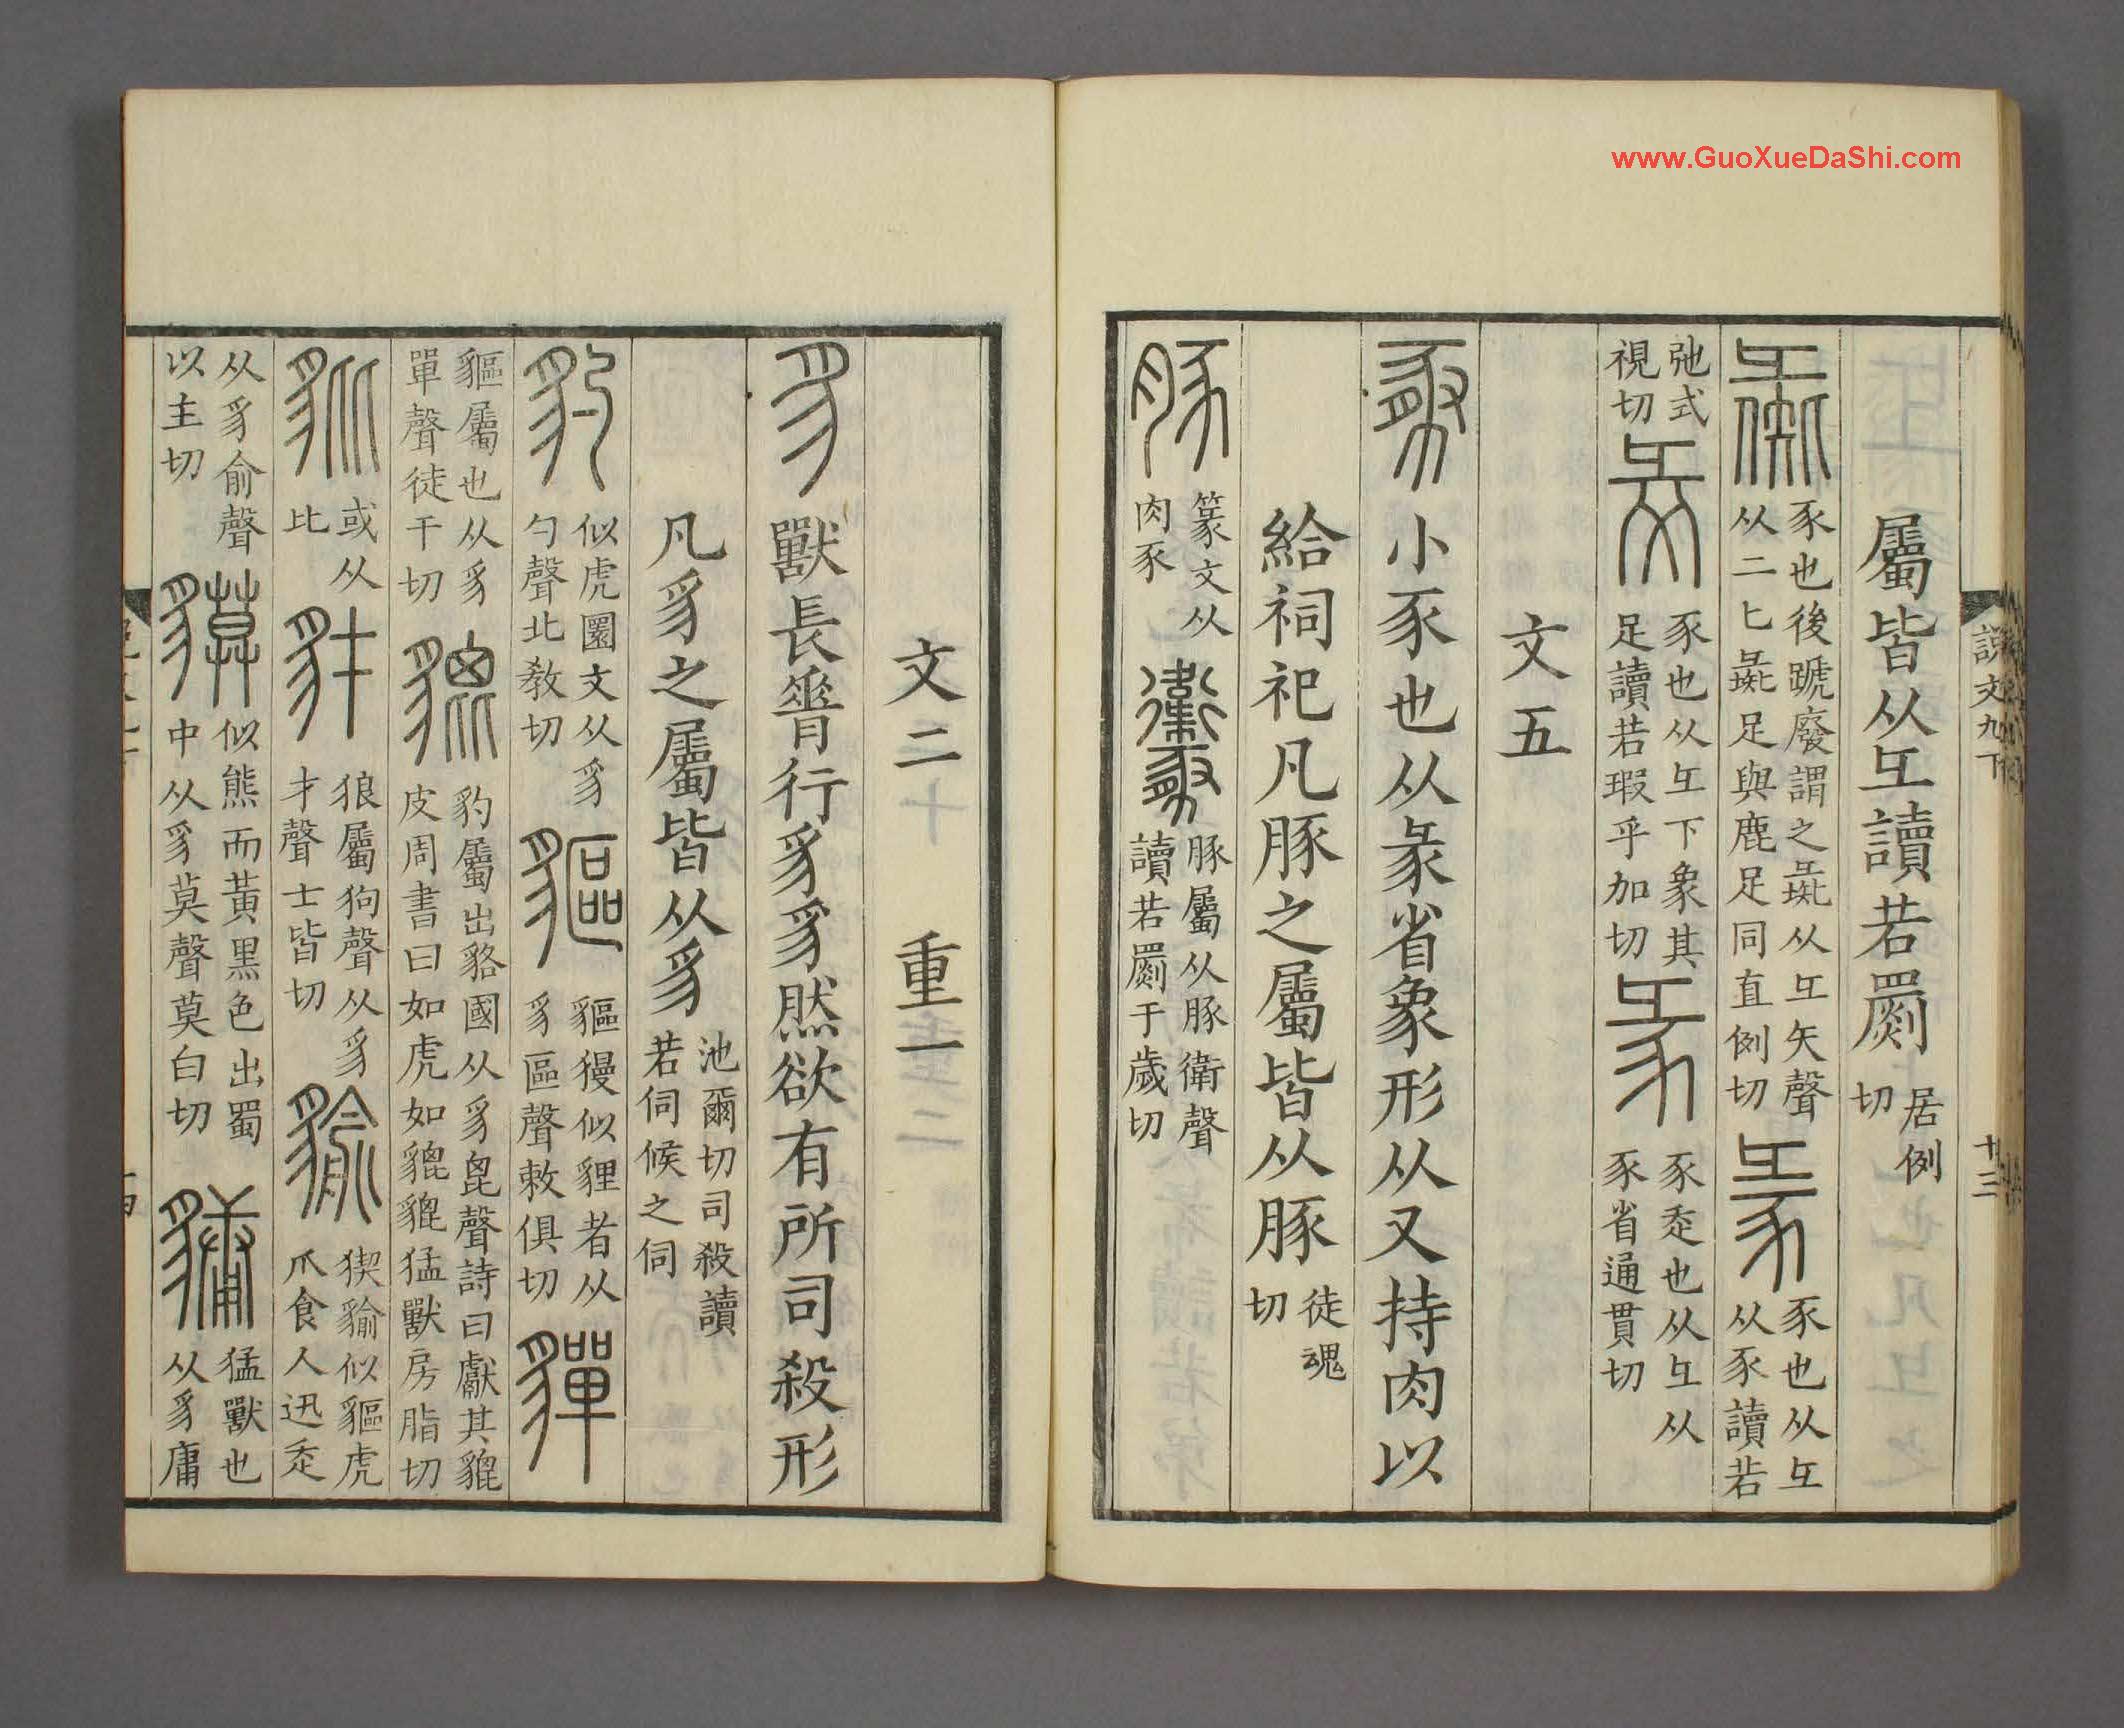 www.GuoXueDaShi.com
說文九下 十三
屬皆从彑讀若罽居例切
彘豕也後蹏廢謂之彘从彑矢聲从二匕彘足與鹿足同直例切𢑓豕也从彑从豕讀若
弛式視切𢑔豕也从彑下象其足讀若瑕乎加切彖豕走也从彑从豕省通貫切
文五
𢑹小豕也从彖省象形从又持肉以
給祠祀凡豚之屬皆从豚徒魂切
豚篆文从肉豕𧲗豚屬从豚衛聲讀若罽于歲切
文二 重一
豸獸長𦟝行豸豸然欲有所司殺形
凡豸之屬皆从豸池爾切司殺讀若伺候之伺
豹似虎圜文从豸勺聲北教切貙貙獌似貍者从豸區聲敕俱切貚
貙屬也从豸單聲徒干切貔豹屬出貉國从豸𣬉聲詩曰獻其貔皮周書曰如虎如貔貔猛獸房脂切
豼或从比豺狼屬狗聲从豸才聲士皆切貐猰貐似貙虎爪食人迅走
从豸俞聲以主切貘似熊而黃黑色出蜀中从豸莫聲莫白切䝻猛獸也从豸庸